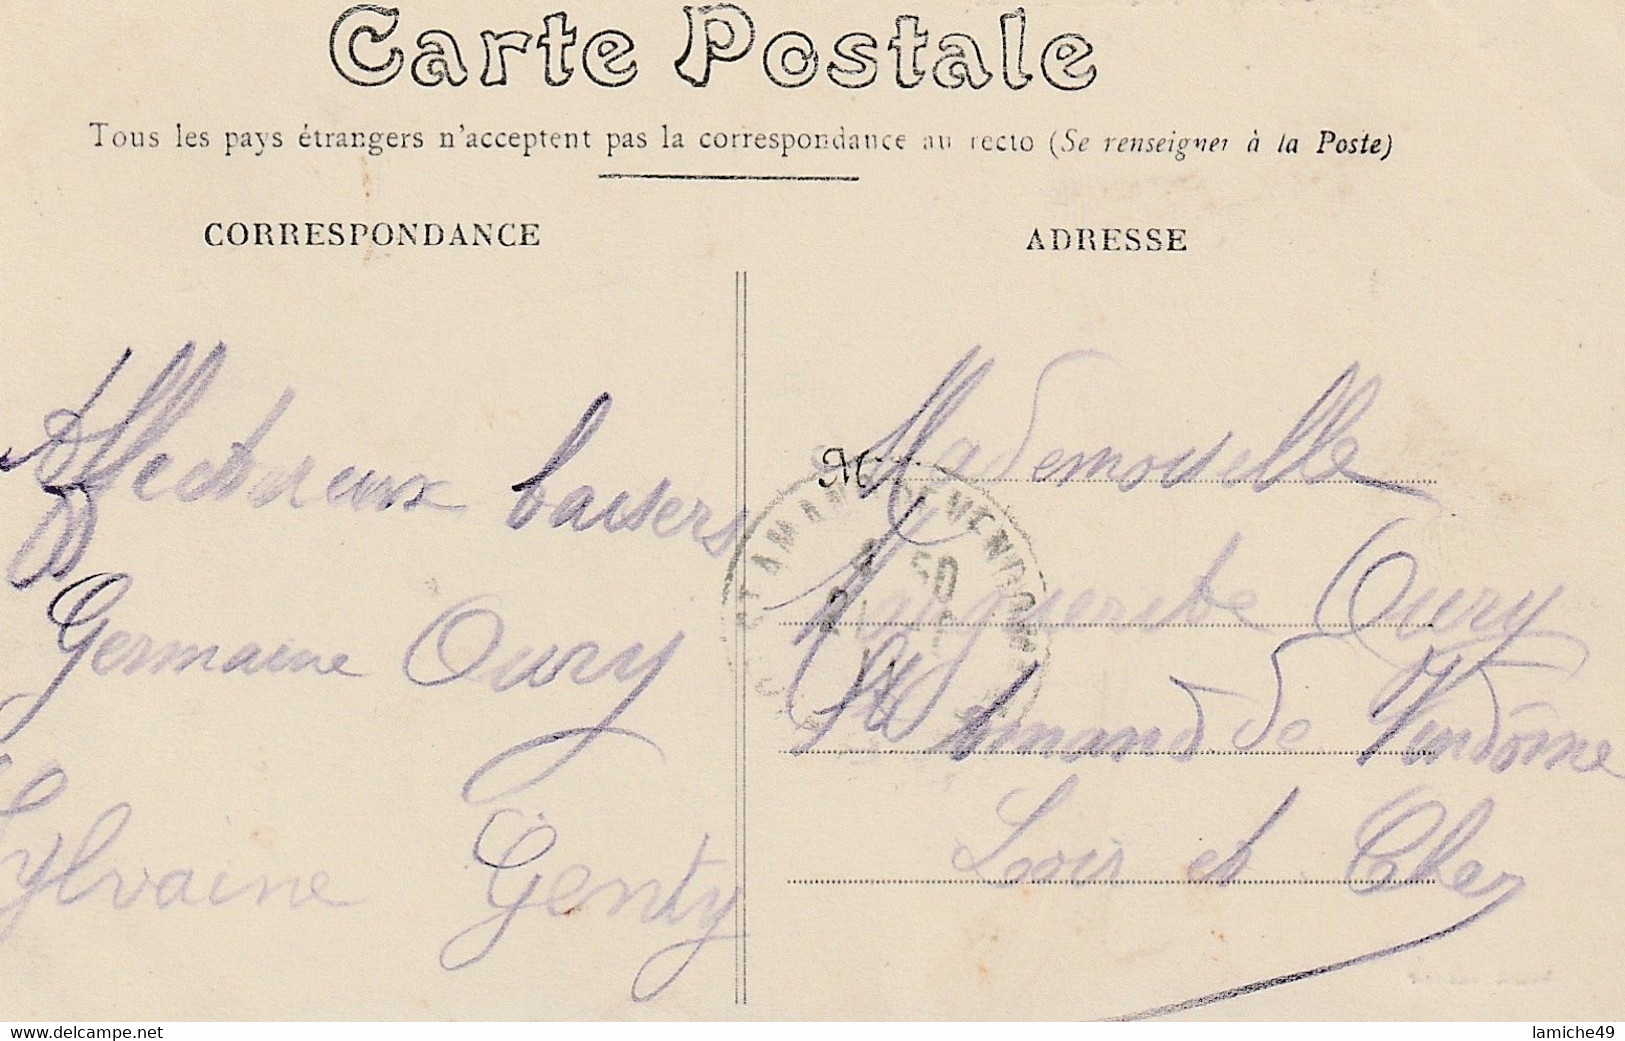 Carte Postale
Tous les pays étrangers n'acceptent pas la correspondance au recto (Se renseigner à la Poste)
CORRESPONDANCE
ADRESSE
Affectueux baisers
Germaine Oury
Sylvaine Genty
M
Mademoiselle
Marguerite Oury
St Amand de Vendôme
Loir et Cher
ST AMAND DE VENDOME
lamiche49